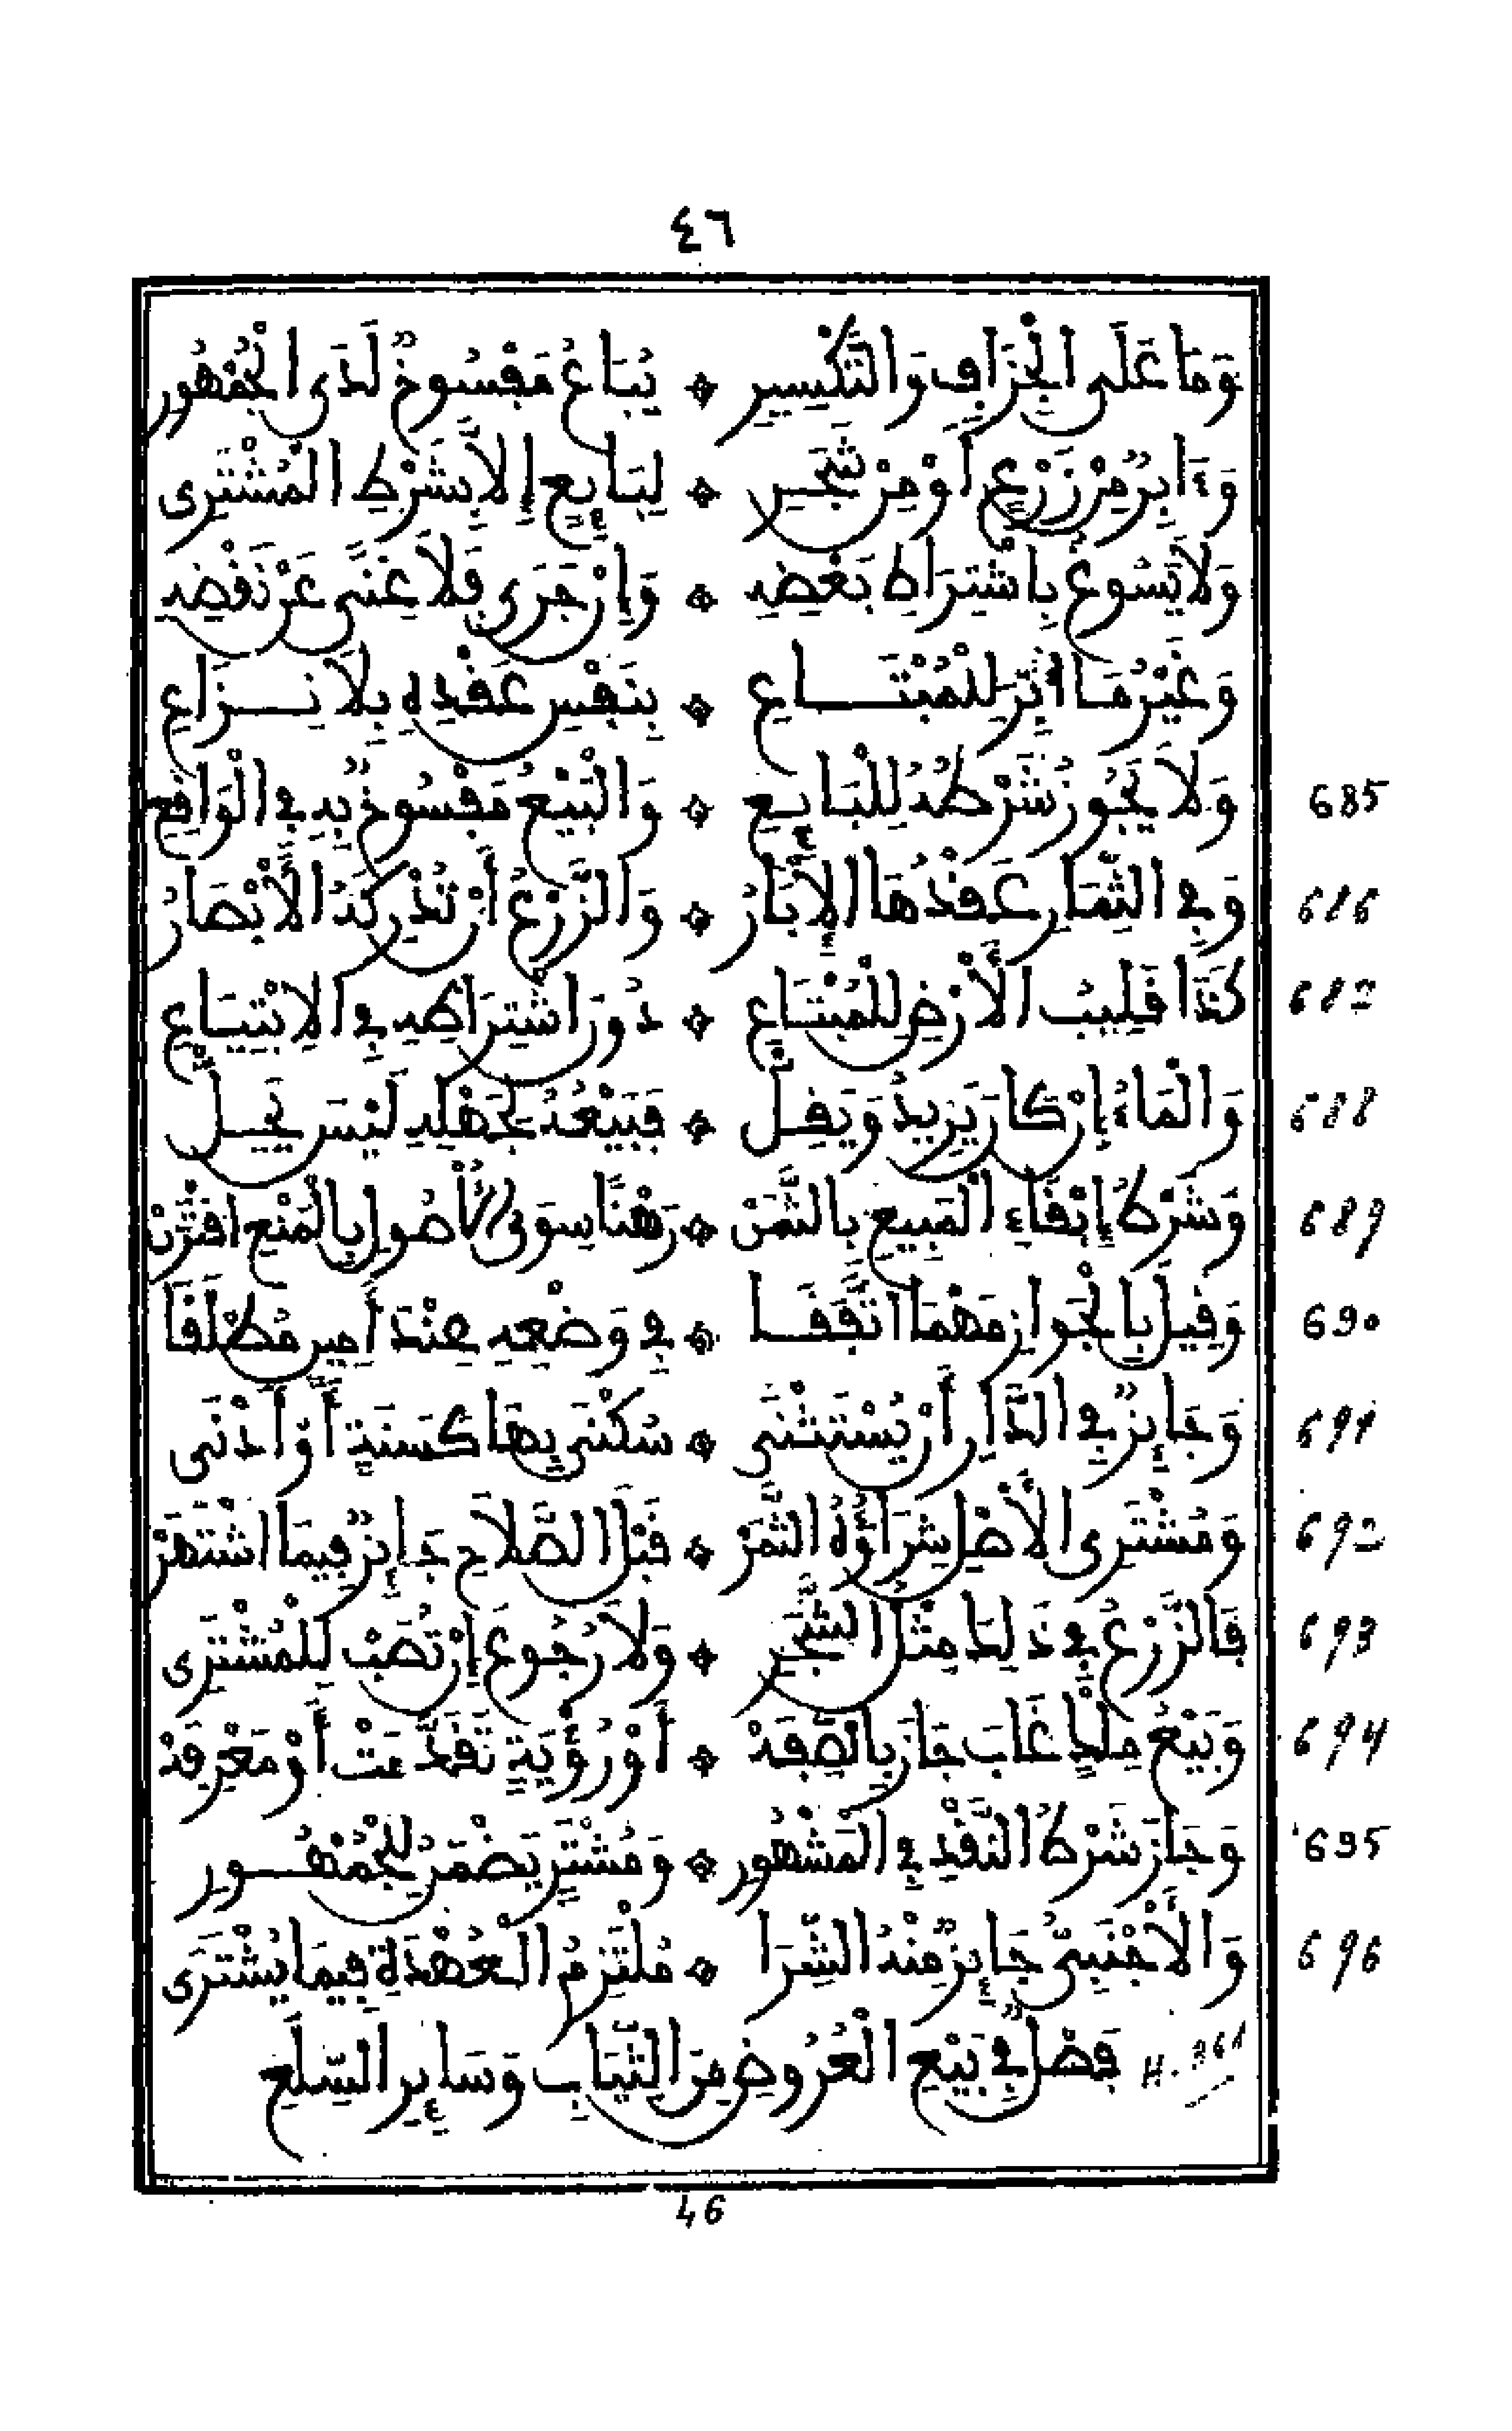 ٤٦
وَمَا عَلَى الْجِزَافِ وَالتَّكْسِيرِ ❊ يُبَاعُ مَفْسُوخٌ لَدَى الْجُمْهُورِ
وَءَابِرٌ مِنْ زَرْعٍ أَوْ مِنْ شَجَرِ ❊ لِبَائِعٍ إِلاَّ بِشَرْطِ الْمُشْتَرِى
وَلاَ يَسُوغُ بِاشْتِرَاطِ بَعْضِهِ ❊ وَإِنْ جَرَى فَلاَ غِنًى عَنْ نَقْضِهِ
وَغَيْرُ مَا ابِّرَ لِلْمُبْتَاعِ ❊ بِنَفْسِ عَقْدِهِ بِلاَ نِزَاعِ
وَلاَ يَجُوزُ شَرْطُهُ لِلْبَائِعِ ❊ وَالْبَيْعُ مَفْسُوخٌ بِهِ فِى الْوَاقِعِ 685
وَفِى الثِّمَارِ عَقْدُهَا الإِبَّارُ ❊ وَالزَّرْعُ أَنْ تُدْرِكَهُ الأَبْصَارُ 686
كَذَا قَلِيبُ الأَرْضِ لِلْمُبْتَاعِ ❊ دُونَ اشْتِرَاطِهِ فِى الاِبْتِيَاعِ 682
وَالْمَاءُ إِنْ كَانَ يَزِيدُ وَيَقِلْ ❊ فَبَيْعُهُ لِجَهْلِهِ لَيْسَ يَحِلْ 688
وَشَرْطُ إِبْقَاءِ الْمَبِيعِ بِالثَّمَنْ ❊ رَهْنًا سِوَى الأُصُولِ بِالْمَنْعِ اقْتَرَنْ 689
وَقِيلَ بِالْجَوَازِ مَهْمَا اتَّفَقَا ❊ فِى وَضْعِهِ عِنْدَ أَمِينٍ مُطْلَقَا 690
وَجَائِزٌ فِى الدَّارِ أَنْ يُسْتَثْنَى ❊ سُكْنَى بِهَا كَسَنَةٍ أَوْ أَدْنَى 691
وَمُشْتَرِى الأَصْلِ شِرَاؤُهُ الثَّمَرْ ❊ قَبْلَ الصَّلاَحِ جَائِزٌ فِيمَا اشْتَهَرْ 692
فَالزَّرْعُ فِى ذَلِكَ مِثْلُ الشَّجَرِ ❊ وَلاَ رُجُوعَ إِنْ تُصَبْ لِلْمُشْتَرِى 693
وَبَيْعُ مِلْكٍ غَابَ جَازَ بِالصِّفَهْ ❊ أَوْ رُؤْيَةٍ تَقَدَّمَتْ أَوْ مَعْرِفَهْ 694
وَجَازَ شَرْطُ النَّقْدِ فِى الْمَشْهُورِ ❊ وَمُشْتَرٍ يَضْمَنُ لِلْجُمْهُورِ 695
وَالأَجْنَبِىُّ جَائِزٌ مِنْهُ الشِّرَا ❊ مُلْتَزِمُ الْعُهْدَةِ فِيمَا يُشْتَرَى 696
فَصْلٌ فِى بَيْعِ الْعُرُوضِ مِنَ الثِّيَابِ وَسَائِرِ السِّلَعِ
46